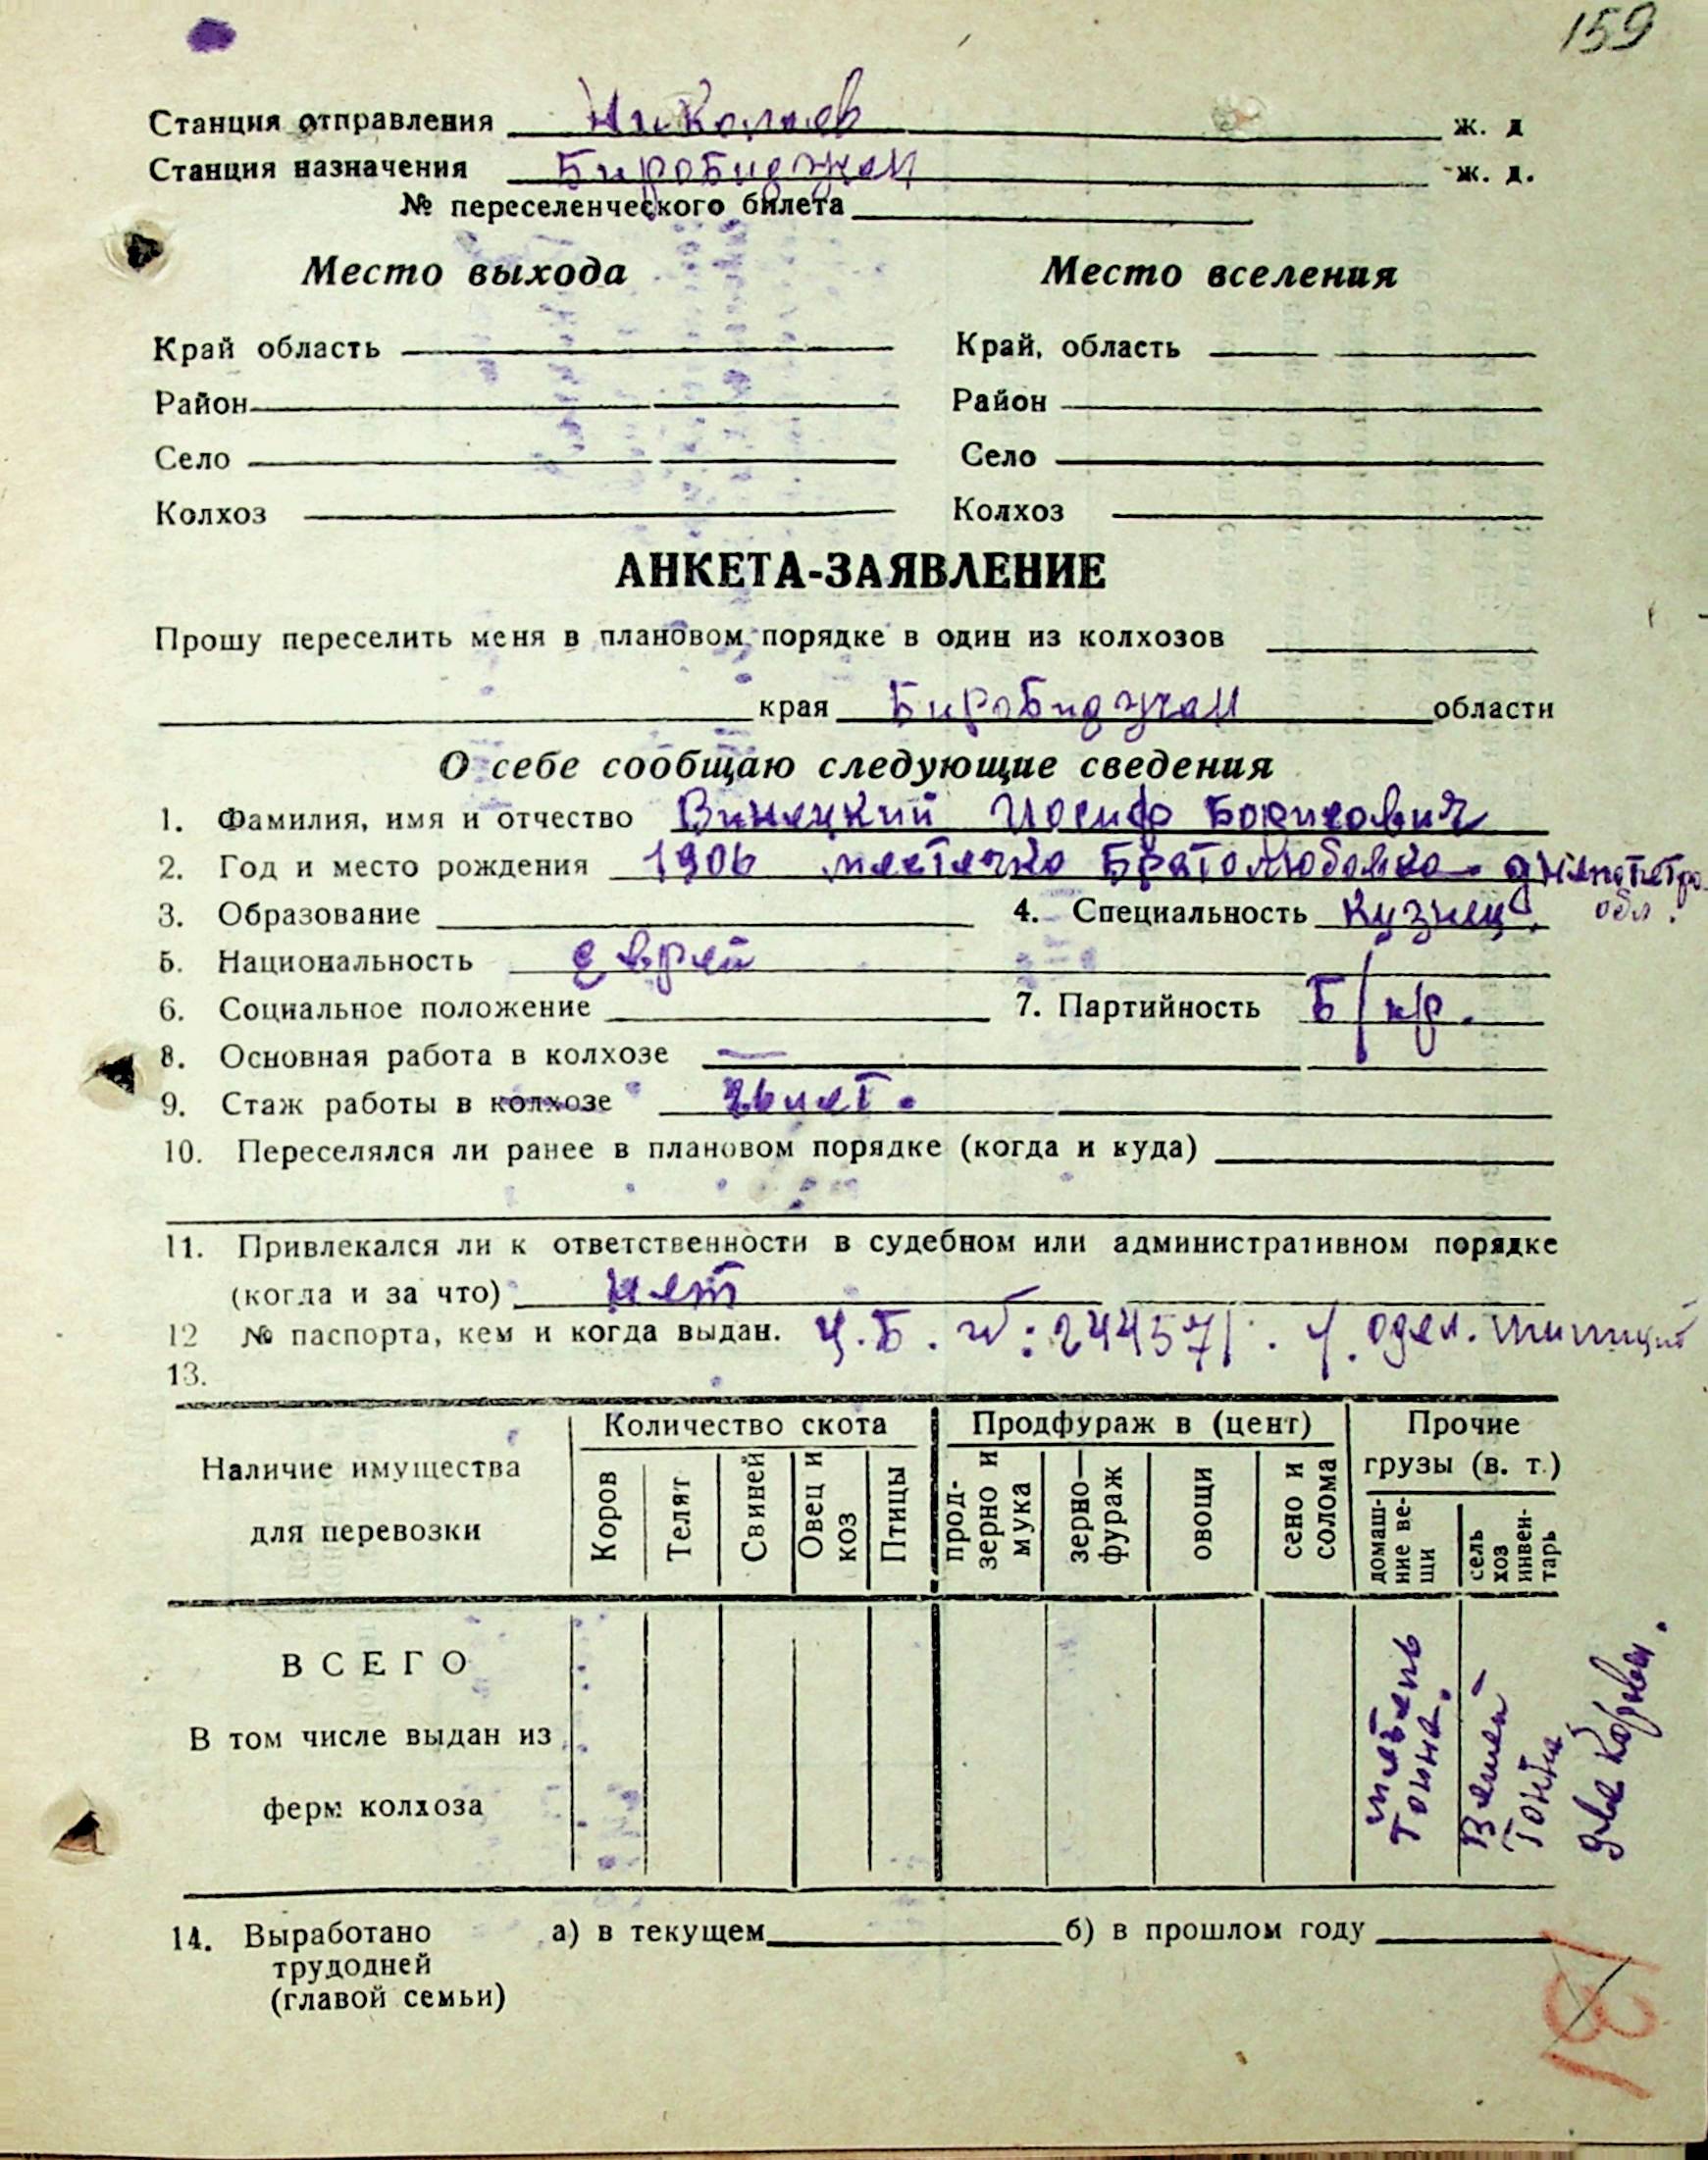 159
Станция отправления Николаев ж. д
Станция назначения Биробиджан ж. д.
№ переселенческого билета
Место выхода Место вселения
Край область Край, область
Район Район
Село Село
Колхоз Колхоз
АНКЕТА-ЗАЯВЛЕНИЕ
Прошу переселить меня в плановом порядке в один из колхозов
края Биробиджан области
О себе сообщаю следующие сведения
1. Фамилия, имя и отчество Винецкий Иосиф Борисович
2. Год и место рождения 1906 местечко Братолюбовка днепопетро
обл.
3. Образование 4. Специальность Кузнец.
5. Национальность еврей
6. Социальное положение 7. Партийность Б/пр.
8. Основная работа в колхозе —
9. Стаж работы в колхозе лет.
10. Переселялся ли ранее в плановом порядке (когда и куда)
11. Привлекался ли к ответственности в судебном или административном порядке
(когда и за что) нет
12 № паспорта, кем и когда выдан. 244571. отдел. милиции
13.
Наличие имущества для перевозки
Количество скота Продфураж в (цент) Прочие грузы (в. т.)
Коров Телят Свиней Овец и коз Птицы прод-зерно и мука зерно—фураж овощи сено и солома домаш-ние ве-щи сель хоз инвен-тарь
ВСЕГО
В том числе выдан из
ферм колхоза
тонна.
тонна
две
14. Выработано а) в текущем б) в прошлом году
трудодней
(главой семьи)
181